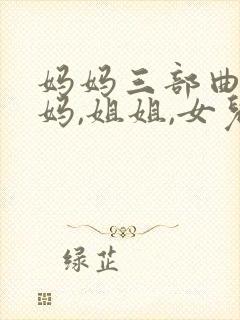 妈妈三部曲
妈,姐姐,女
绿芷